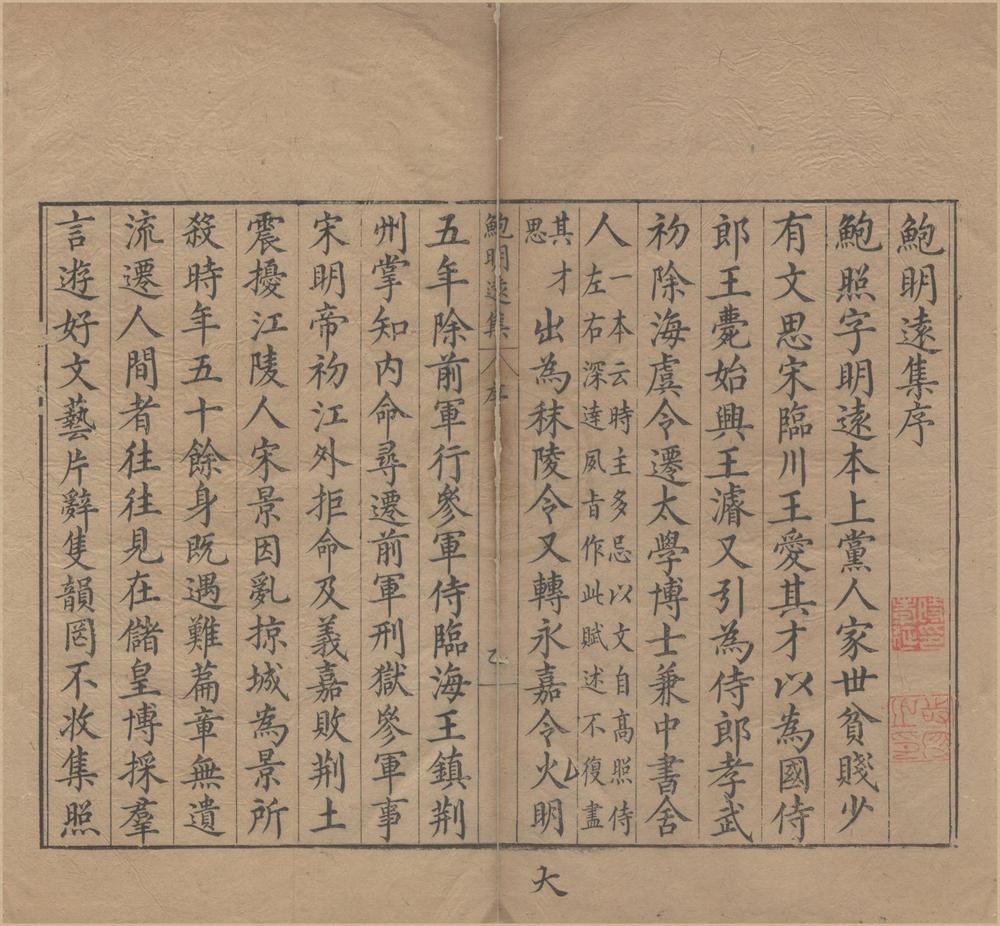 鮑明遠集序
鮑照字明遠本上黨人家世貧賤少
有文思宋臨川王愛其才以為國侍
郎王薨始興王濬又引為侍郎孝武
初除海虞令遷太學博士兼中書舍
人一本云時主多忌以文自高照侍
左右深達風旨作此賦述不復盡
其才
思
出為秣陵令又轉永嘉令火明
大
鮑明遠集
序
乙
五年除前軍行參軍侍臨海王鎮荆
州掌知内命尋遷前軍刑獄參軍事
宋明帝初江外拒命及義嘉敗荆土
震擾江陵人宋景因亂掠城為景所
殺時年五十餘身既遇難篇章無遺
流遷人間者往往見在儲皇博採羣
言遊好文藝片辭隻韻罔不收集照